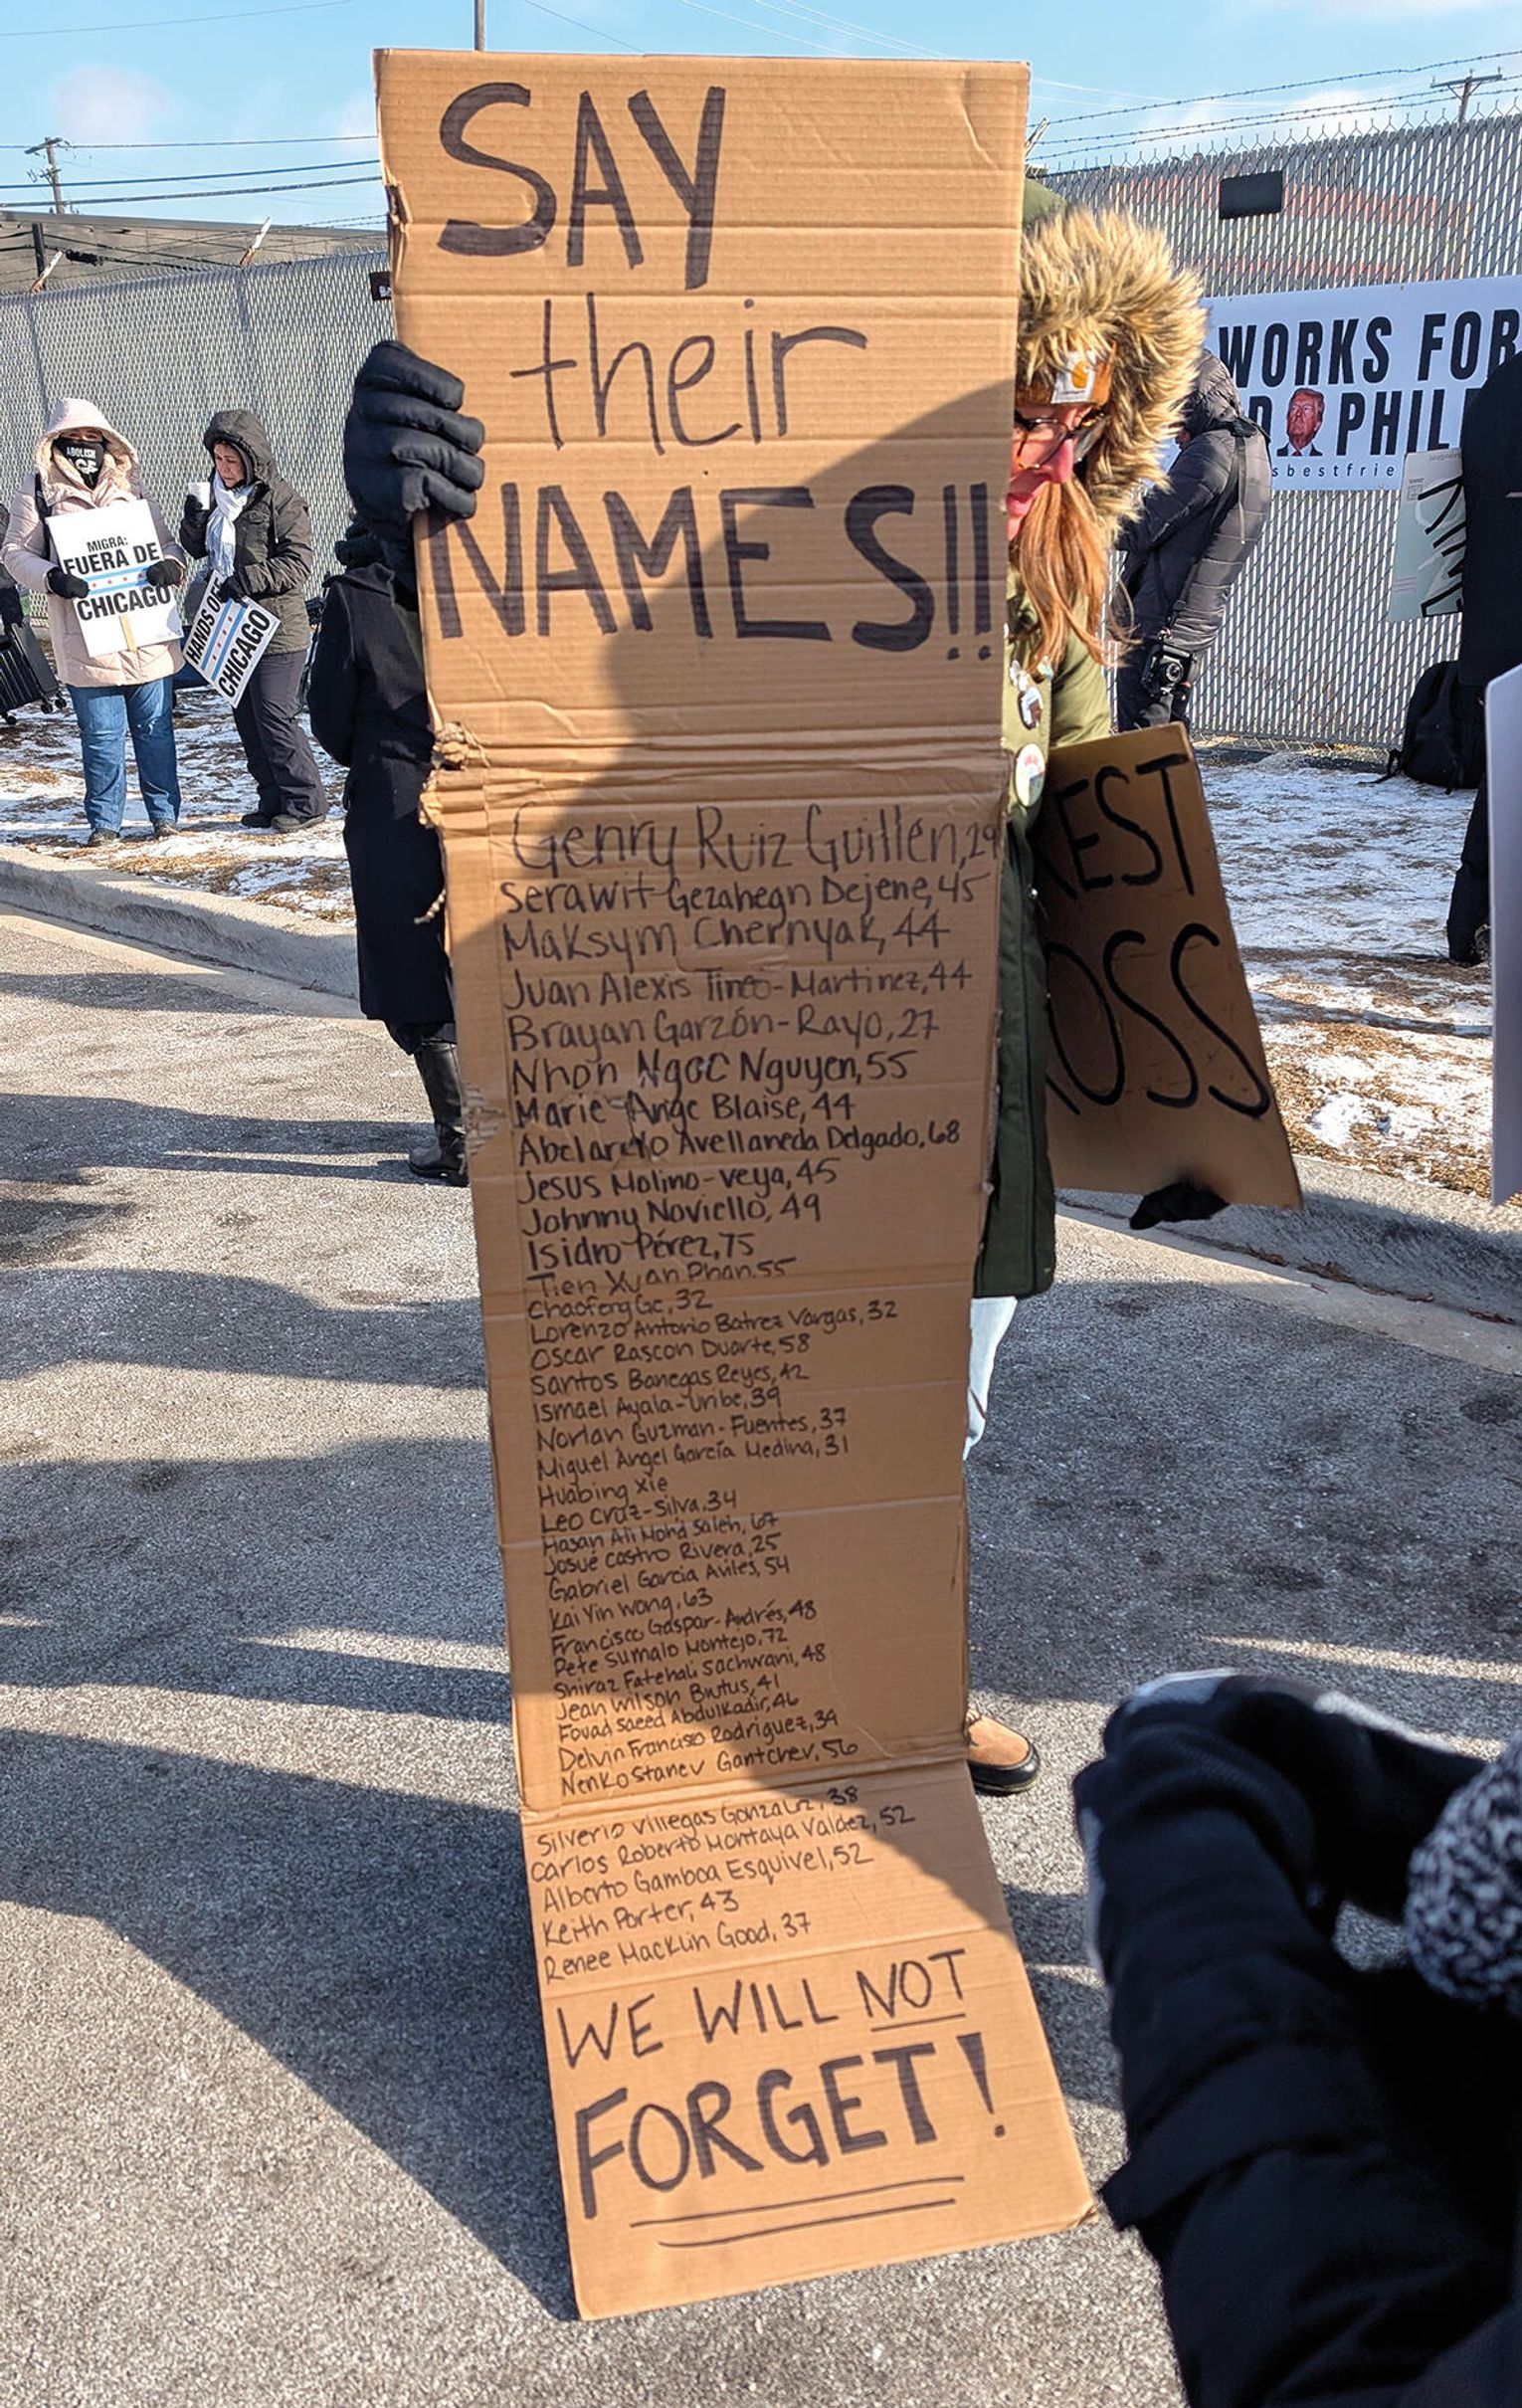 SAY
their
NAMES!!
Genry Ruiz Guillen, 29
Serawit Gezahegn Dejene, 45
Maksym Chernyak, 44
Juan Alexis Tineo-Martinez, 44
Brayan Garzón-Rayo, 27
Nhon Ngoc Nguyen, 55
Marie Ange Blaise, 44
Abelardo Avellaneda Delgado, 68
Jesus Molino-veya, 45
Johnny Noviello, 49
Isidro Pérez, 75
Tien Xuan Phan, 55
Chaofeng Ge, 32
Lorenzo Antonio Batrez Vargas, 32
Oscar Rascon Duarte, 58
Santos Banegas Reyes, 42
Ismael Ayala-Uribe, 39
Norlan Guzman-Fuentes, 37
Miguel Ángel García Medina, 31
Huabing Xie
Leo Cruz-Silva, 34
Hasan Ali Mohd Saleh, 67
Josué Castro Rivera, 25
Gabriel Garcia Aviles, 54
Kai Yin Wong, 63
Francisco Gaspar-Andrés, 48
Pete Sumalo Montejo, 72
Shiraz Fatehali Sachwani, 48
Jean Wilson Brutus, 41
Fouad Saeed Abdulkadir, 46
Delvin Francisco Rodriguez, 39
Nenko Stanev Gantchev, 56
Silverio Villegas Gonzalez, 38
Carlos Roberto Montoya Valdez, 52
Alberto Gamboa Esquivel, 52
Keith Porter, 43
Renee Macklin Good, 37
WE WILL NOT
FORGET!
MIGRA:
FUERA DE
CHICAGO
HANDS OF
CHICAGO
ABOLISH
WORKS FOR
D PHIL
sbestfrie
EST
OSS